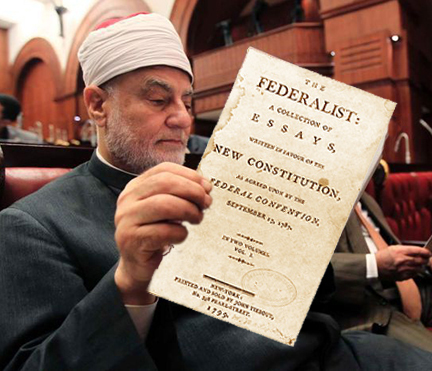 THE
FEDERALIST:
A COLLECTION OF
ESSAYS,
WRITTEN IN FAVOUR OF THE
NEW CONSTITUTION,
AS AGREED UPON BY THE
FEDERAL CONVENTION,
SEPTEMBER 17, 1787.
IN TWO VOLUMES.
VOL. I.
NEW-YORK:
PRINTED AND SOLD BY JOHN TIEBOUT,
No. 358 PEARL-STREET.
1799.